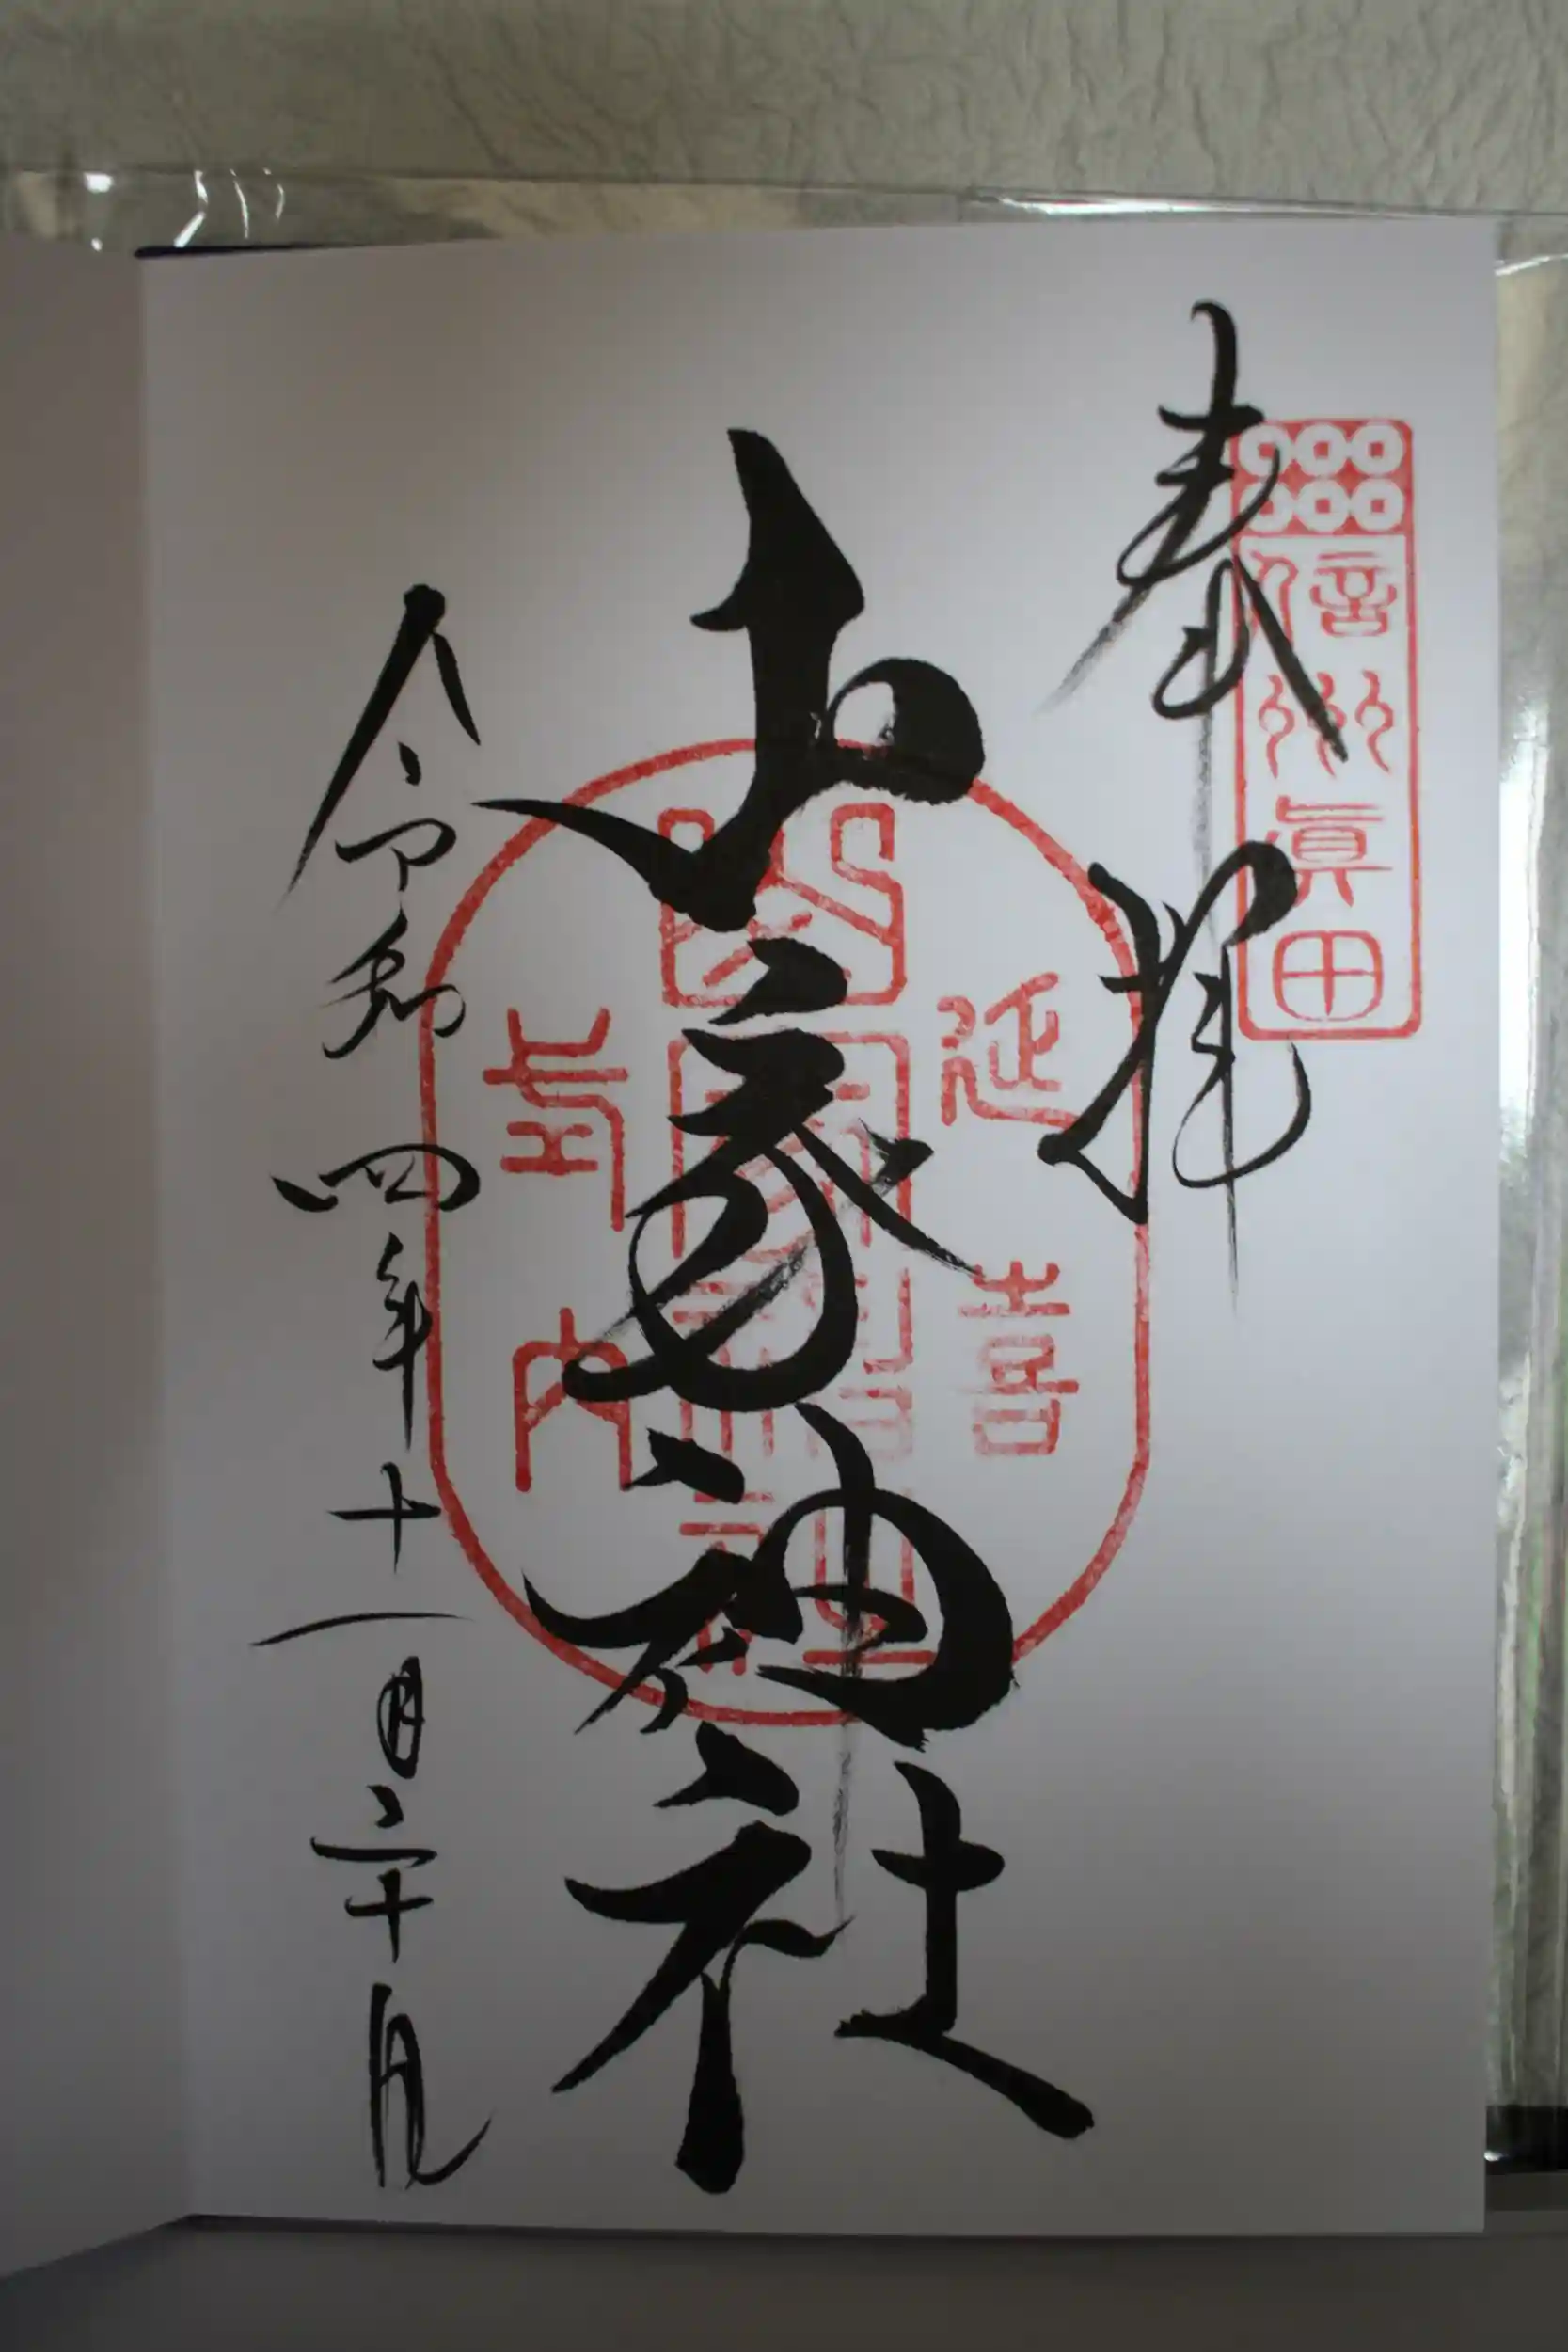 奉拝
信州眞田
延喜式内
山家神社
山家神社
令和四年十一月二十日